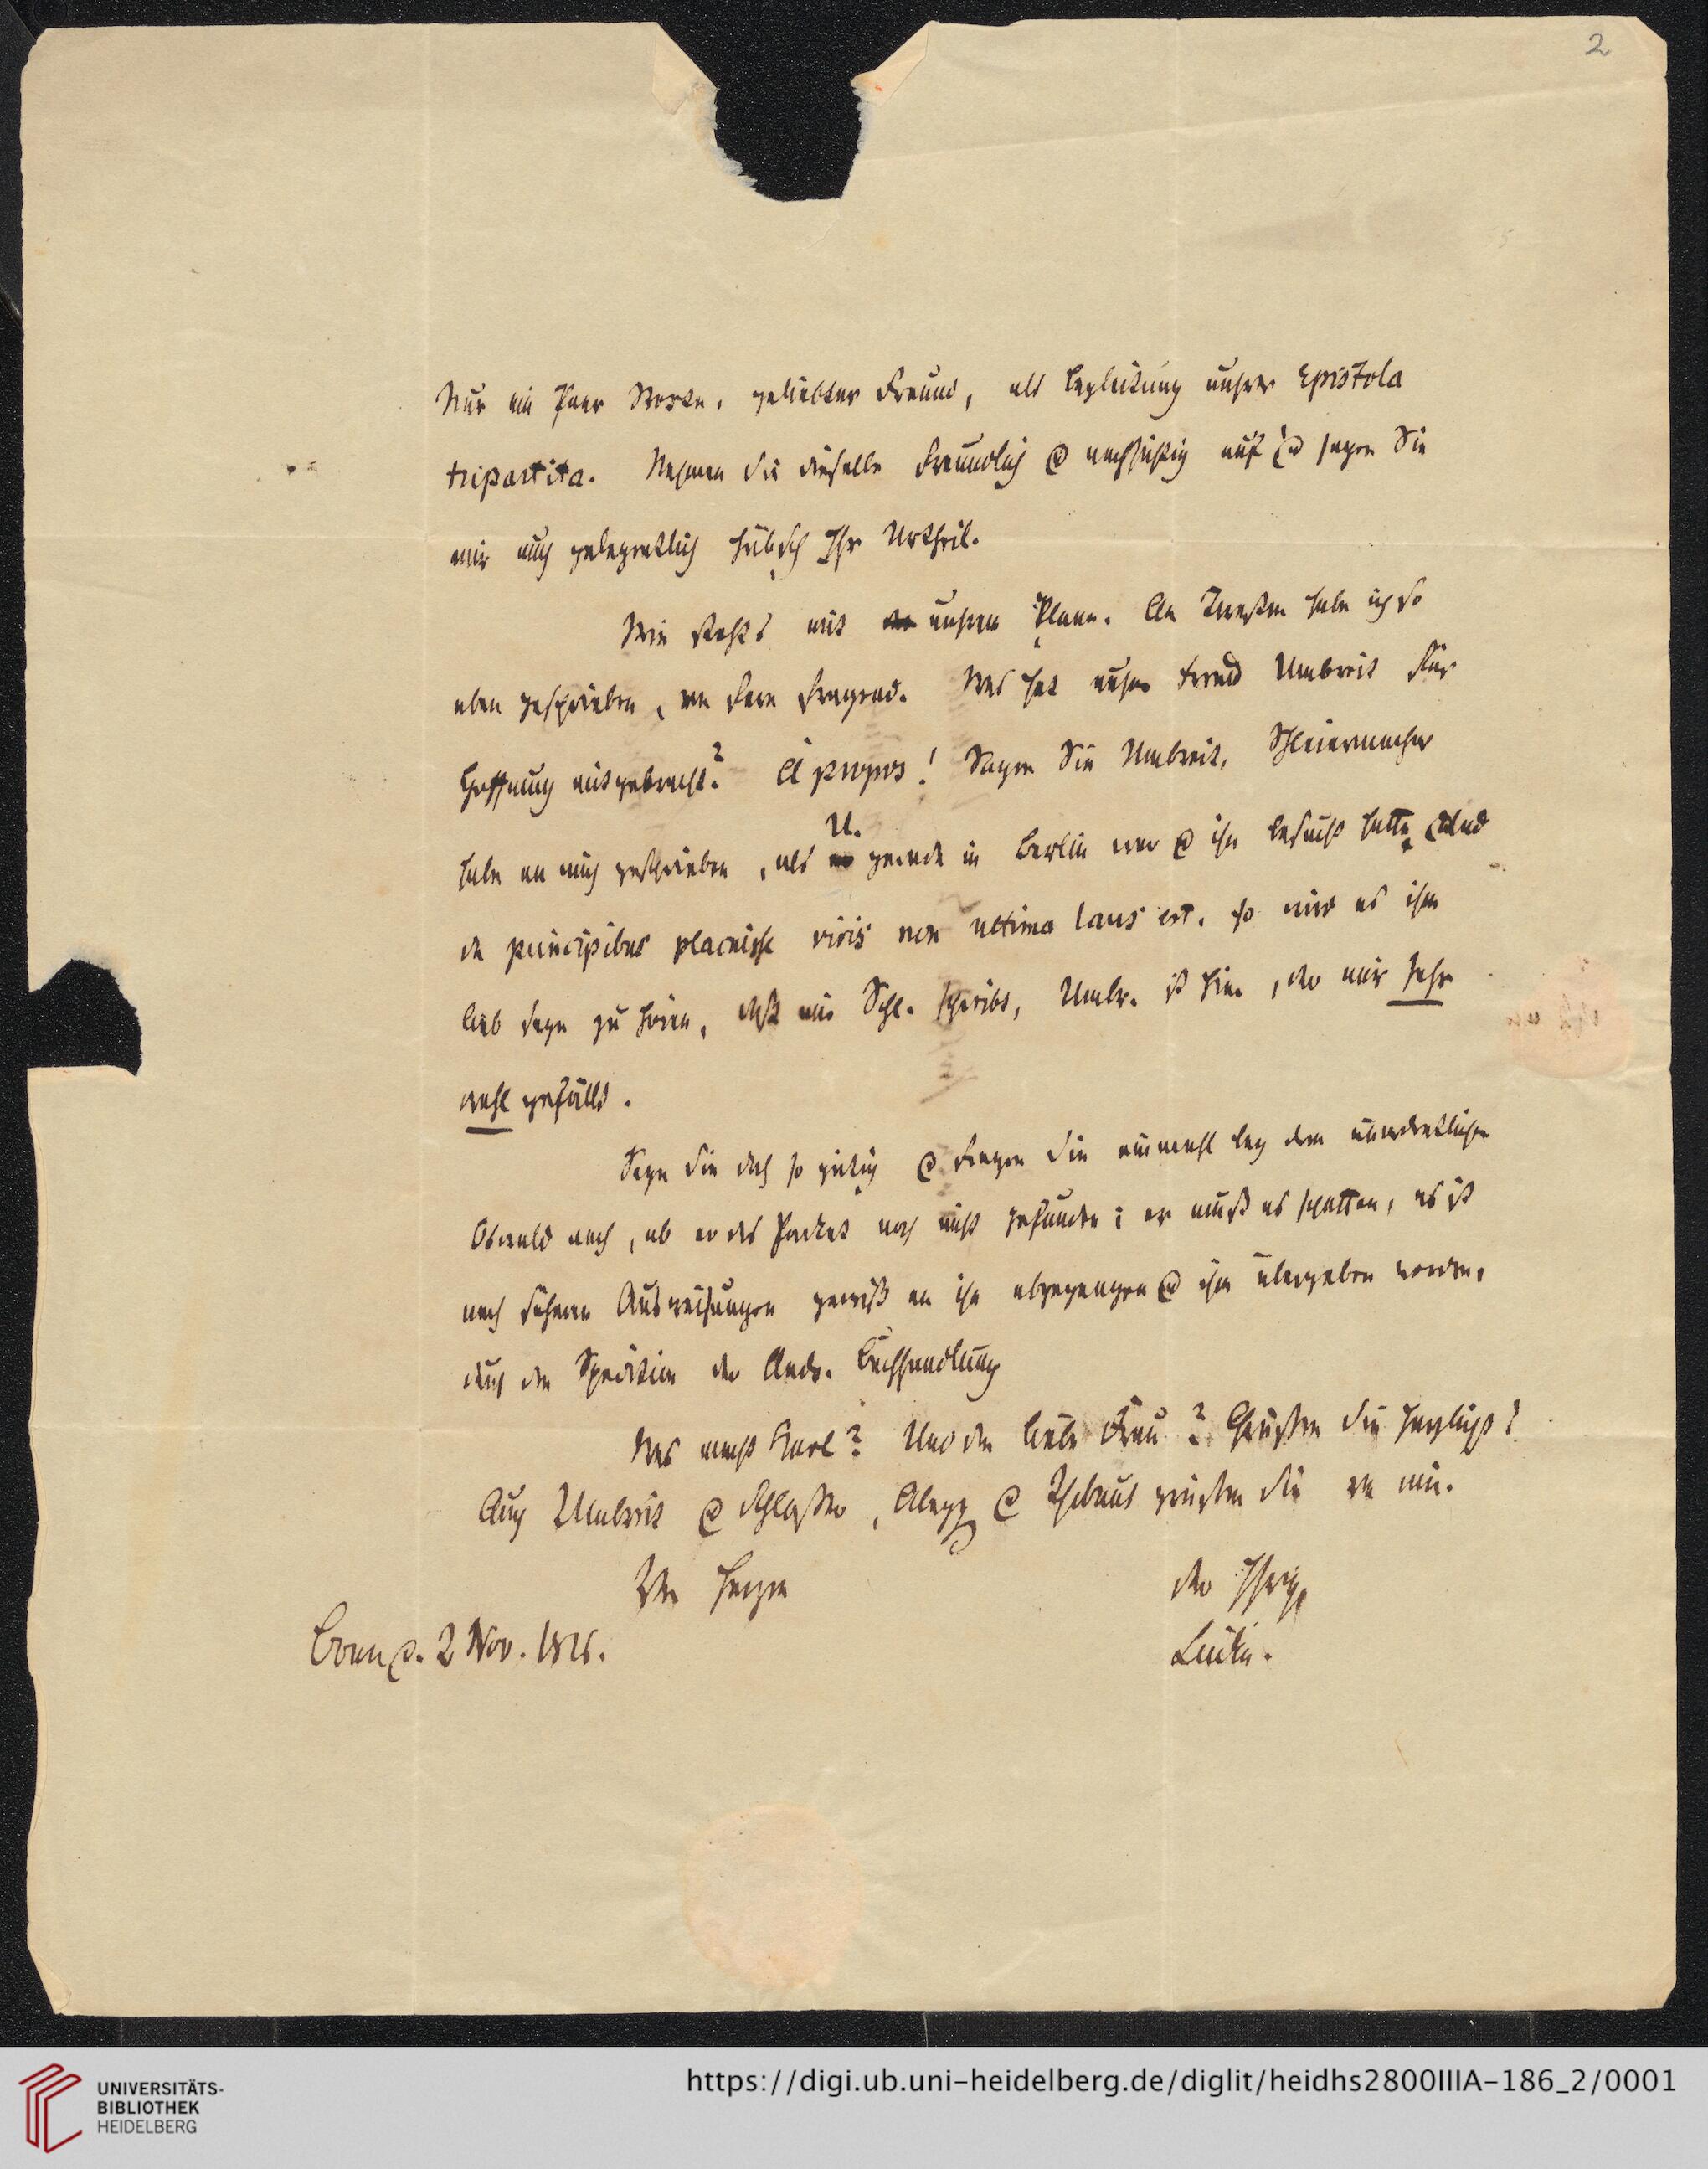 2
Nur ein Paar Worte, geliebter Freund, als Begleitung unsrer Epistola
tripartita. Nehmen Sie dieselbe freundlich & nachsichtig auf & sagen Sie
mir auch gelegentlich hübsch Ihr Urtheil.
Wie stehts mit unsrem Plane. An Twesten habe ich so
eben geschrieben, Was hat unser Freund Umbreit für
Hoffnung mitgebracht? A propos! Sagen Sie Umbreit, Schleiermacher
habe an mich geschrieben, als U. gerade in Berlin war & ihn besucht hatte, & da
principibus placuisse viris non ultima laus est, so wird es ihm
lieb seyn zu hören, daß mir Schl. schreibt, Umbr. ist hier, der mir sehr
wohl gefällt.
Seyn Sie doch so gütig & fragen Sie einmahl bey dem unordentlichen
Oswald nach, ob er das Packet noch nicht gefunden; er muß es haben, es ist
nach sichern Ausweisungen gewiß an ihn abgegangen & ihm übergeben worden,
durch die Spedition der Andr. Buchhandlung
Was macht Karl? Und die liebe Frau? Grüßen Sie herzlichst!
Auch Umbreit & Schlosser, Abegg & Thibaut grüßen Sie von mir.
Von Herzen
der Ihrige
Bonn d. 2 Nov. 1818.
Lücke.
UNIVERSITÄTS-
BIBLIOTHEK
HEIDELBERG
https://digi.ub.uni-heidelberg.de/diglit/heidhs2800IIIA-186_2/0001